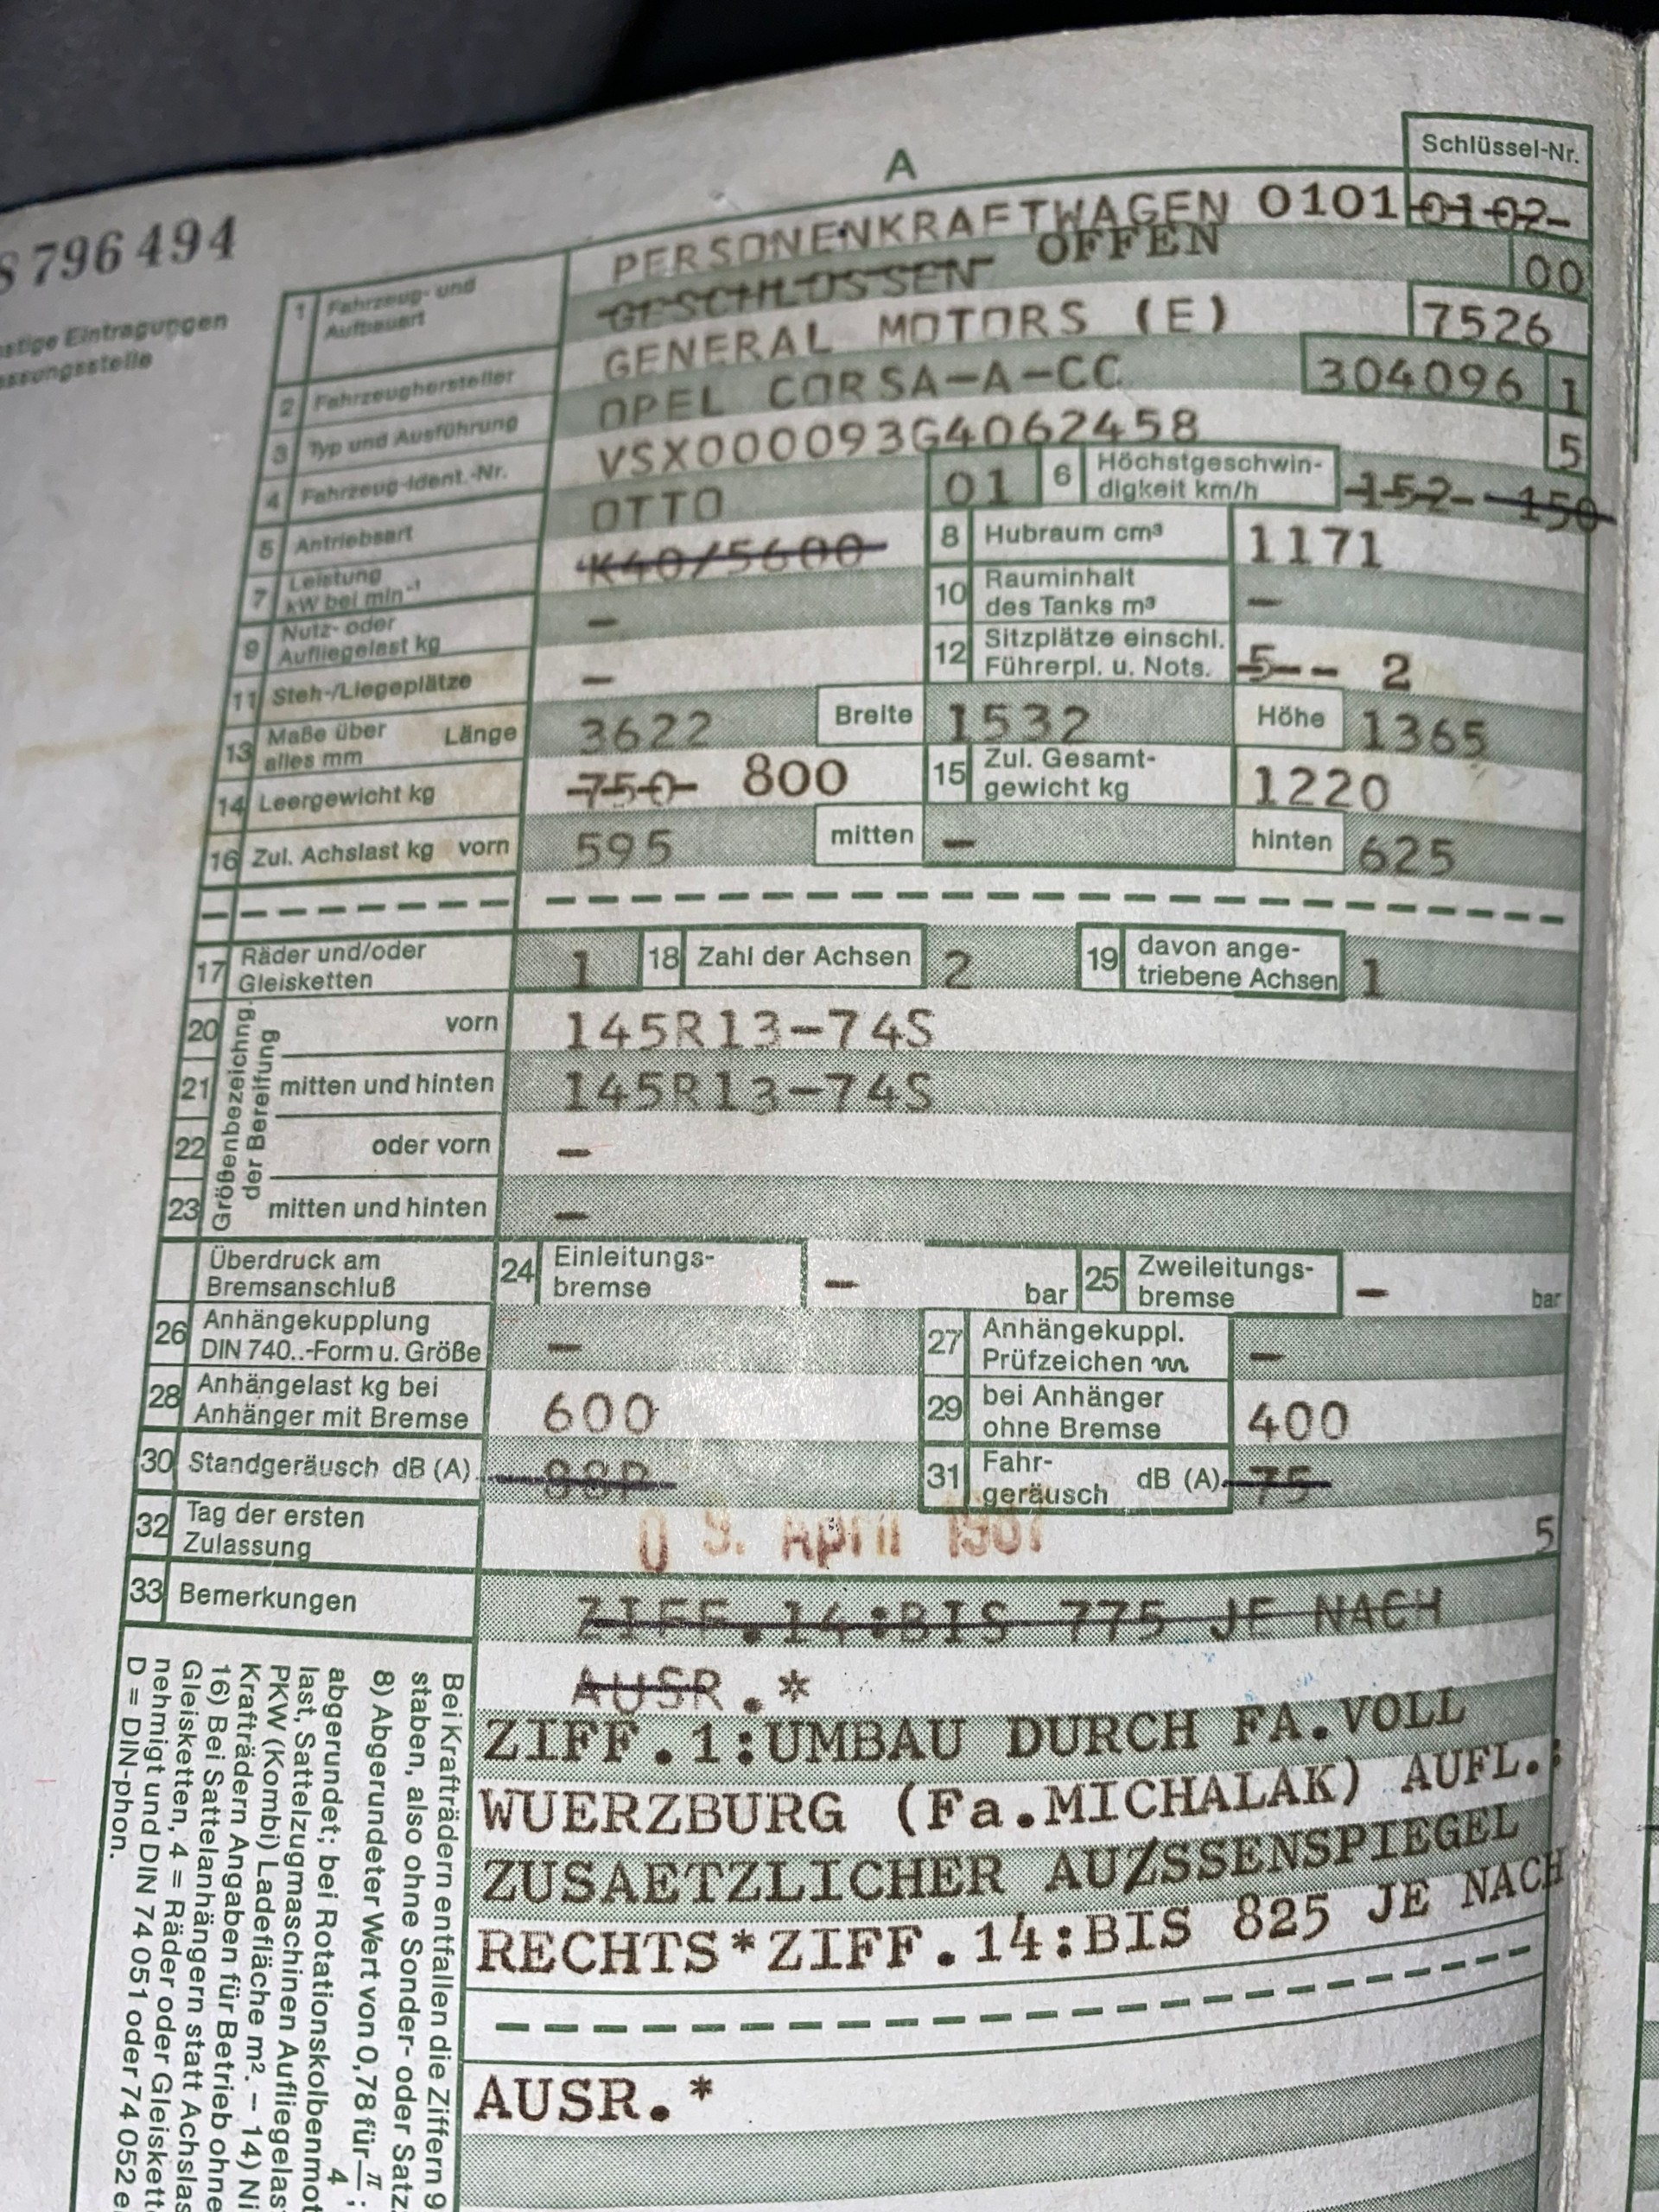 796494
A
Schlüssel-Nr.
stige Eintragungen
assungsstelle
1 Fahrzeug- und Aufbauart
PERSONENKRAFTWAGEN 0101 0102-
GESCHLOSSEN OFFEN 00
2 Fahrzeughersteller GENERAL MOTORS (E) 7526
3 Typ und Ausführung OPEL CORSA-A-CC 304096 1
4 Fahrzeug-Ident.-Nr. VSX000093G4062458 5
5 Antriebsart OTTO 01 6 Höchstgeschwin-
digkeit km/h 152- 150
7 Leistung kW bei min⁻¹ K40/5600 8 Hubraum cm³ 1171
9 Nutz- oder Aufliegelast kg – 10 Rauminhalt des Tanks m³ –
11 Steh-/Liegeplätze – 12 Sitzplätze einschl. Führerpl. u. Nots. 5-- 2
13 Maße über alles mm Länge 3622 Breite 1532 Höhe 1365
14 Leergewicht kg 750- 800 15 Zul. Gesamt-
gewicht kg 1220
16 Zul. Achslast kg vorn 595 mitten – hinten 625
17 Räder und/oder Gleisketten 1 18 Zahl der Achsen 2 19 davon ange-
triebene Achsen 1
Größenbezeichng. der Bereifung
20 vorn 145R13-74S
21 mitten und hinten 145R13-74S
22 oder vorn –
23 mitten und hinten –
Überdruck am Bremsanschluß 24 Einleitungs-
bremse – bar 25 Zweileitungs-
bremse – bar
26 Anhängekupplung DIN 740..-Form u. Größe – 27 Anhängekuppl. Prüfzeichen –
28 Anhängelast kg bei Anhänger mit Bremse 600 29 bei Anhänger ohne Bremse 400
30 Standgeräusch dB (A) 88P 31 Fahr-
geräusch dB (A) 75
32 Tag der ersten Zulassung 09. April 1987 5
33 Bemerkungen ZIFF.14:BIS 775 JE NACH
AUSR.*
ZIFF.1:UMBAU DURCH FA.VOLL
WUERZBURG (Fa.MICHALAK) AUFL.:
ZUSAETZLICHER AUZSSENSPIEGEL
RECHTS*ZIFF.14:BIS 825 JE NACH
AUSR.*
Bei Krafträdern entfallen die Ziffern 9
staben, also ohne Sonder- oder Satz
8) Abgerundeter Wert von 0,78 für π/4;
abgerundet; bei Rotationskolbenmot
last, Sattelzugmaschinen Aufliegelas
PKW (Kombi) Ladefläche m². – 14) Ni
Krafträdern Angaben für Betrieb ohne
16) Bei Sattelanhängern statt Achslas
Gleisketten, 4 = Räder oder Gleiskett
nehmigt und DIN 74 051 oder 74 052 e
D = DIN-phon.